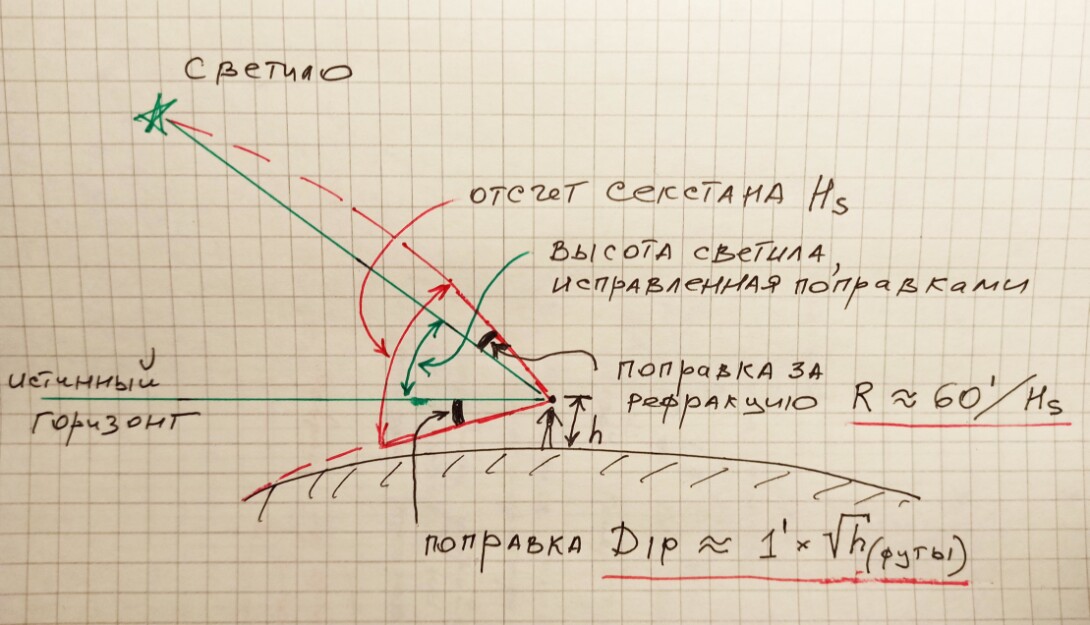 Светило
отсчет секстана Hs
высота светила,
исправленная поправками
истинный
горизонт
поправка за
рефракцию R ≈ 60'/Hs
h
поправка Dip ≈ 1' × √h (футы)